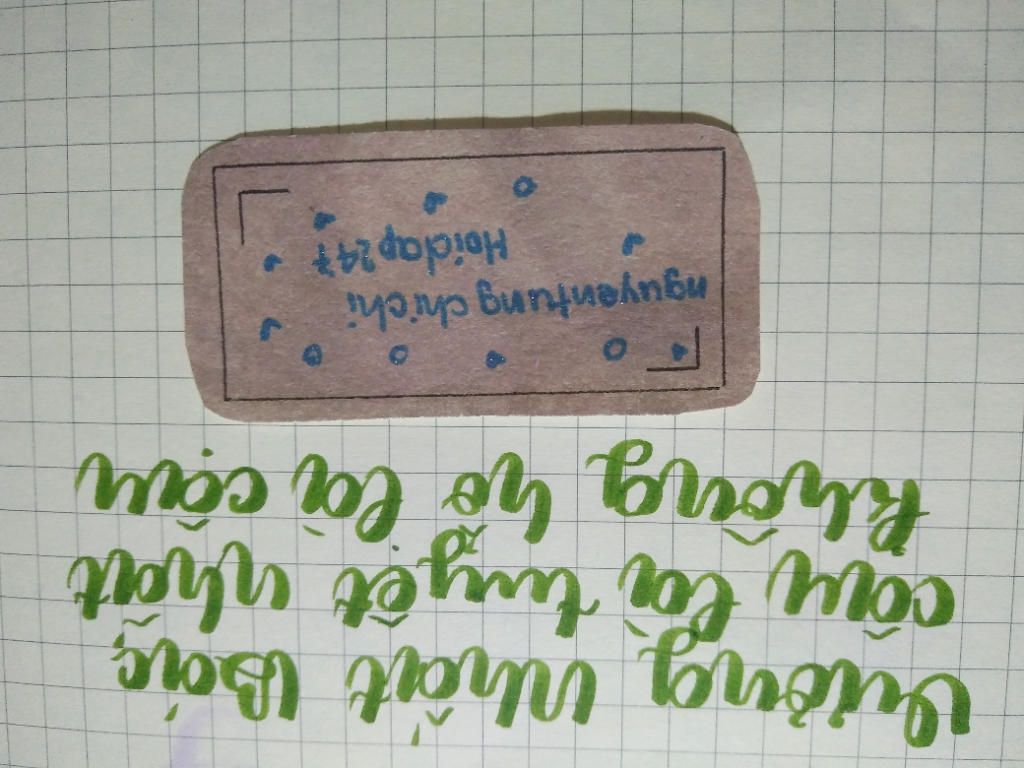 Vương Nhất Bác
cậu là tuyệt nhất
không hổ là cậu
nguyentung chichi
Hoidap247